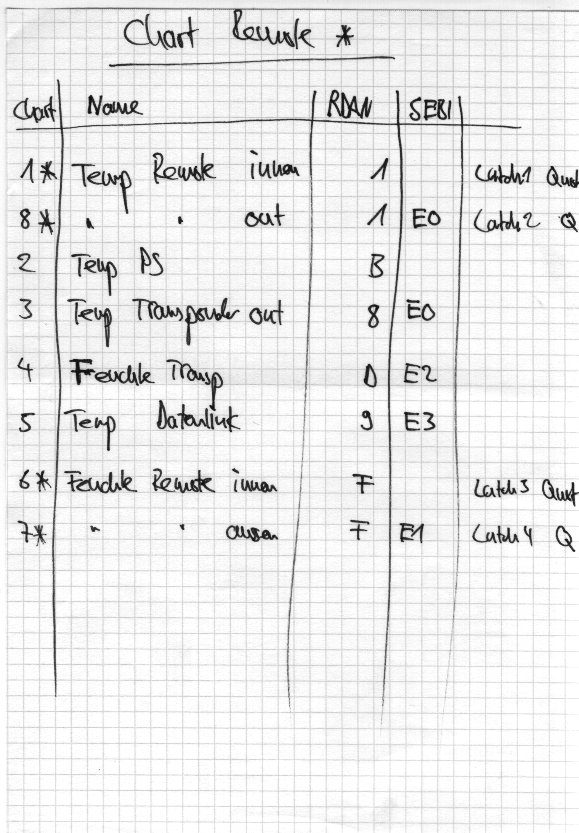 Chart Remote *
Chart Name RDAN SEBI
1* Temp Remote innen 1 Latch1 Quot
8* " " out 1 E0 Latch2 Q
2 Temp PS B
3 Temp Transponder out 8 E0
4 Feuchte Transp D E2
5 Temp Datenlink 9 E3
6* Feuchte Remote innen F Latch3 Quot
7* " " aussen F E1 Latch4 Q